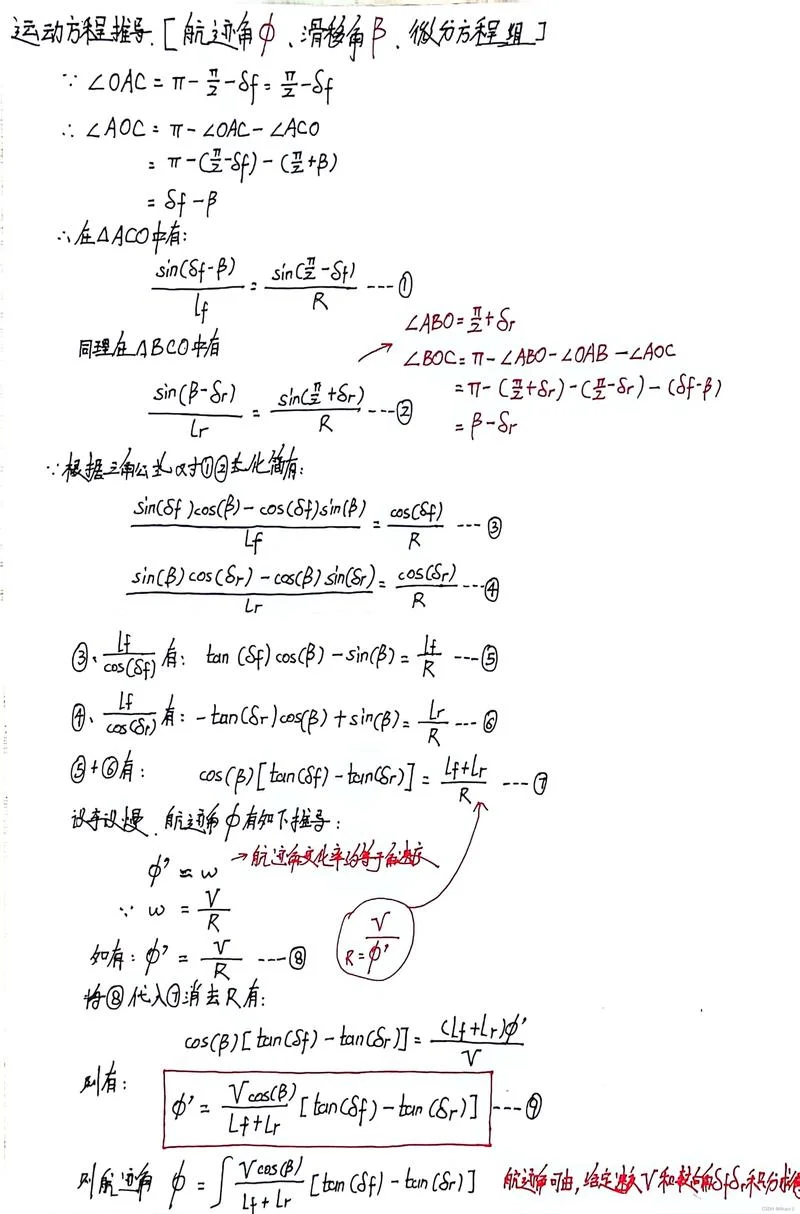 运动方程推导.[航迹角φ、滑移角β、微分方程组]
∵ ∠OAC = π - π/2 - δf = π/2 - δf
∴ ∠AOC = π - ∠OAC - ∠ACO
= π - (π/2 - δf) - (π/2 + β)
= δf - β
∴ 在△ACO中有:
sin(δf-β)/Lf = sin(π/2 - δf)/R ---- ①
∠ABO = π/2 + δr
同理在△BCO中有
∠BOC = π - ∠ABO - ∠OAB - ∠AOC
= π - (π/2 + δr) - (π/2 - δr) - (δf - β)
= β - δr
sin(β-δr)/Lr = sin(π/2 + δr)/R ---- ②
∵ 根据三角公式对①②去化简有:
sin(δf)cos(β) - cos(δf)sin(β)/Lf = cos(δf)/R ---- ③
sin(β)cos(δr) - cos(β)sin(δr)/Lr = cos(δr)/R ---- ④
③、Lf/cos(δf) 有: tan(δf)cos(β) - sin(β) = Lf/R ---- ⑤
④、Lf/cos(δr) 有: -tan(δr)cos(β) + sin(β) = Lr/R ---- ⑥
⑤+⑥有: cos(β)[tan(δf) - tan(δr)] = Lf+Lr/R ---- ⑦
航迹角φ有如下推导:
φ' ≈ w → 航迹角变化率约等于角速度
∵ w = V/R
如有: φ' = V/R ---- ⑧
R = V/φ'
将⑧代入⑦消去R有:
cos(β)[tan(δf) - tan(δr)] = (Lf+Lr)φ'/V
则有:
φ' = Vcos(β)/Lf+Lr [tan(δf) - tan(δr)] ---- ⑨
则航迹角 φ = ∫ Vcos(β)/Lf+Lr [tan(δf) - tan(δr)] 航迹角可由,给定速度V和转向角δfδr积分求得